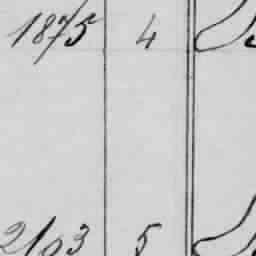 1875 4
2103 5